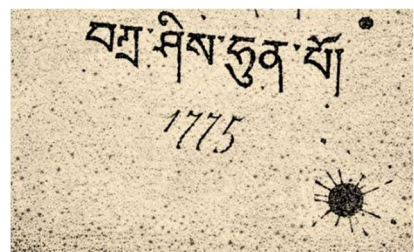 བཀྲ་ཤིས་ལྷུན་པོ།
1775